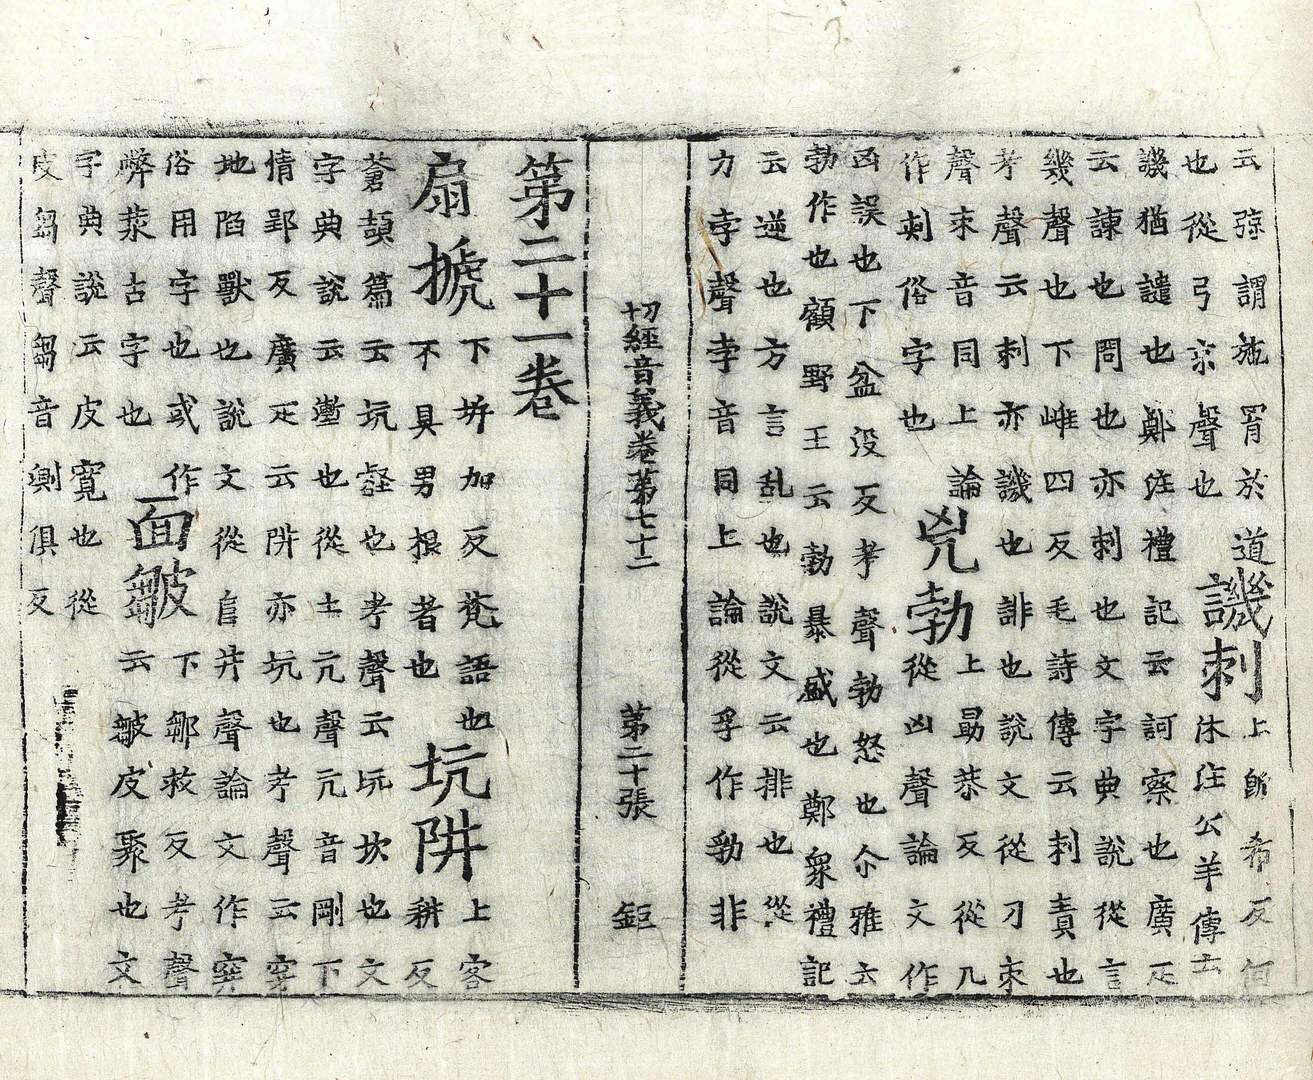 云弶謂施罥於道譏刺上既希反何
也從弓京聲也休注公羊傳云
譏猶譴也鄭注禮記云訶察也廣疋
云諫也問也亦刺也文字典說從言
幾聲也下雌四反毛詩傳云刺責也
考聲云刺亦譏也誹也說文從刀朿
聲朿音同上論兇勃上勗恭反從几
作刾俗字也從凶聲論文作
凶誤也下盆没反考聲勃怒也尒雅云
勃作也顧野王云勃暴盛也鄭衆禮記
云逆也方言乱也說文云排也從
力孛聲孛音同上論從孚作勃非
切經音義卷第七十二 第二十張 鉅
第二十一卷
扇搋下坼加反梵語也不具男根者也坑阱上客耕反
蒼頡篇云坑壑也考聲云坑坎也文
字典說云壍也從土亢聲亢音剛下
情郢反廣疋云阱亦坑也考聲云穿
地陷獸也說文從𨸏井聲論文作穽
俗用字也或作面皺下鄒救反考聲
古字也云皺皮聚也文
字典說云皮寬也從
皮芻聲芻音測俱反